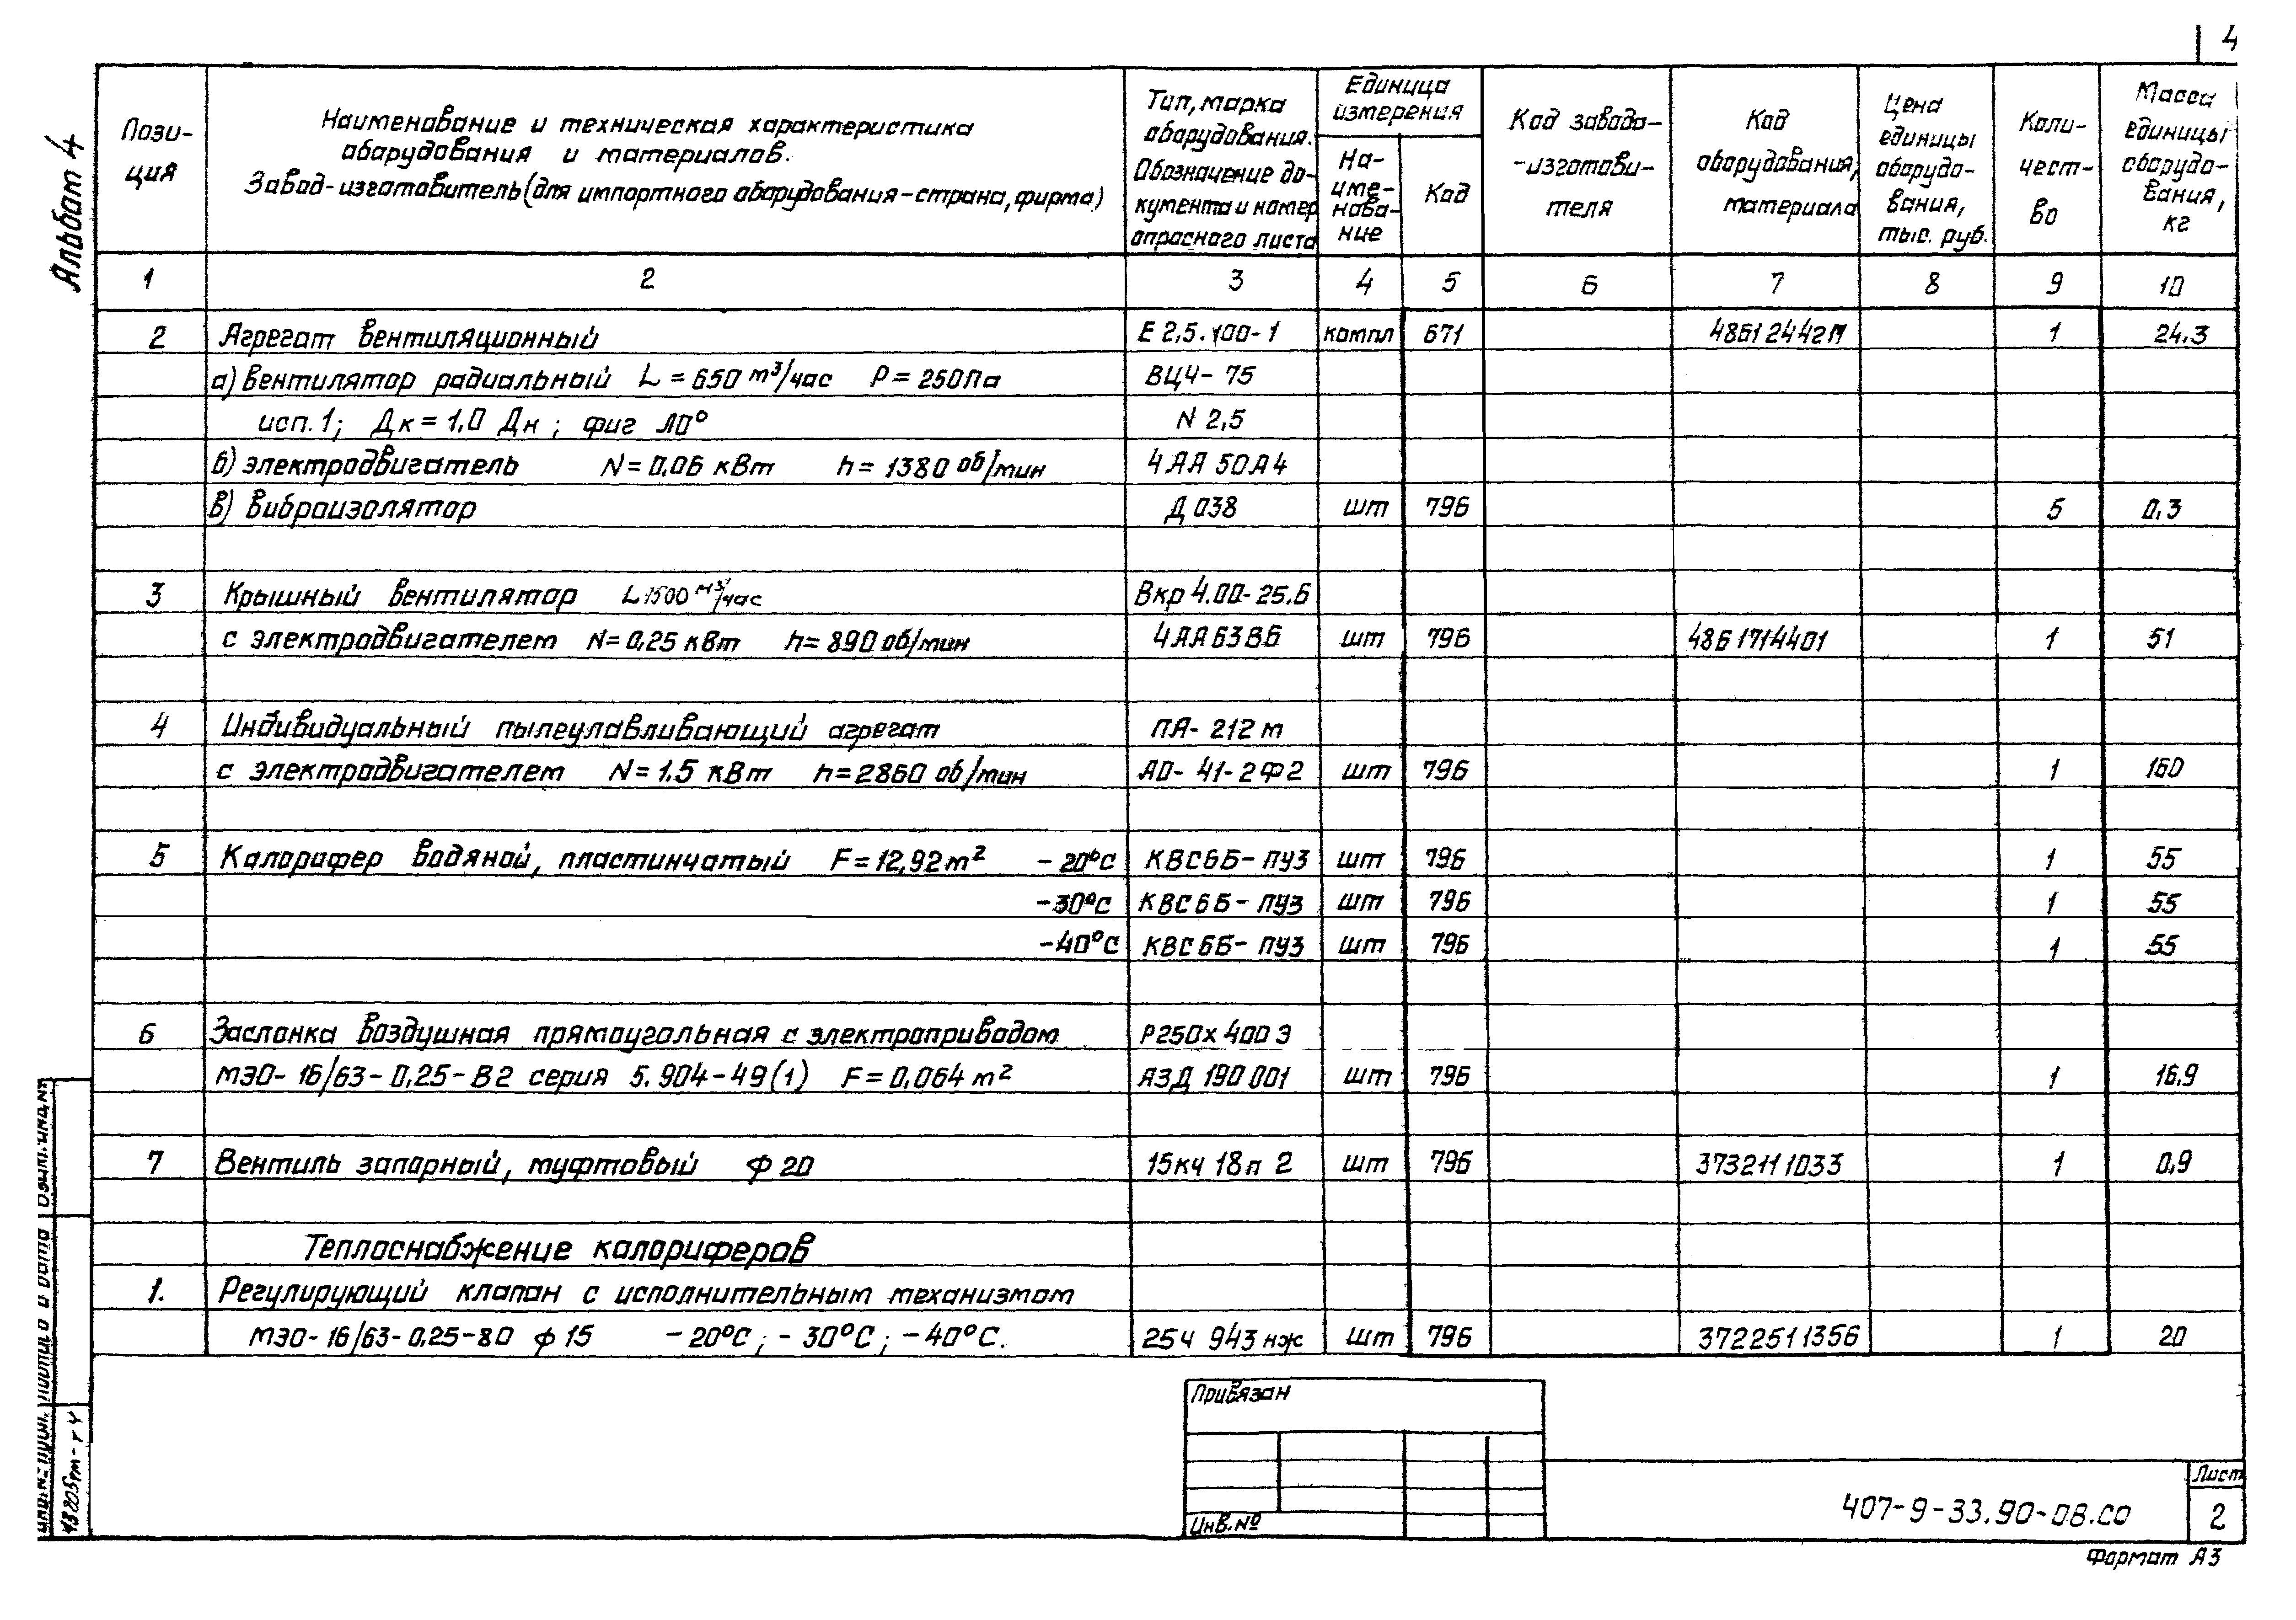 4
Альбом 4
Пози-
ция
Наименование и техническая характеристика
оборудования и материалов.
Завод-изготовитель (для импортного оборудования-страна, фирма)
Тип, марка
оборудования.
Обозначение до-
кумента и номер
опросного листа
Единица
измерения
На-
име-
нова-
ние
Код
Код завода-
-изготови-
теля
Код
оборудования,
материала
Цена
единицы
оборудо-
вания,
тыс. руб.
Коли-
чест-
во
Масса
единицы
оборудо-
вания,
кг
1 2 3 4 5 6 7 8 9 10
2 Агрегат вентиляционный Е 2,5.100-1 компл 671 1 24,3
а) Вентилятор радиальный L = 650 м³/час P = 250Па ВЦ4-75
исп. 1; Дк = 1,0 Дн; фиг Л0° N 2,5
б) электродвигатель N = 0,06 кВт n = 1380 об/мин 4АА 50А4
в) Виброизолятор Д 038 шт 796 5 0,3
3 Крышный вентилятор L 1500 м³/час Вкр 4.00-25.6
с электродвигателем N = 0,25 кВт n = 890 об/мин 4АА63В6 шт 796 4861714401 1 51
4 Индивидуальный пылеулавливающий агрегат ПА-212 м
с электродвигателем N = 1,5 кВт n = 2860 об/мин АО-41-2Ф2 шт 796 1 160
5 Калорифер водяной, пластинчатый F = 12,92 м² -20°С КВС6Б-ПУ3 шт 796 1 55
-30°С КВС6Б-ПУ3 шт 796 1 55
-40°С КВС6Б-ПУ3 шт 796 1 55
6 Заслонка воздушная прямоугольная с электроприводом Р250х400 Э
МЭО-16/63-0,25-В2 серия 5.904-49(1) F = 0,064 м² АЗД 190 001 шт 796 1 16,9
7 Вентиль запорный, муфтовый ф 20 15кч 18п 2 шт 796 3732111033 1 0,9
Теплоснабжение калориферов
1. Регулирующий клапан с исполнительным механизмом
МЭО-16/63-0,25-80 ф 15 -20°С; -30°С; -40°С. 25ч 943 нж шт 796 3722511356 1 20
Привязан
Инв.№
407-9-33.90-08.СО
Лист
2
Формат А3
Подпись и дата